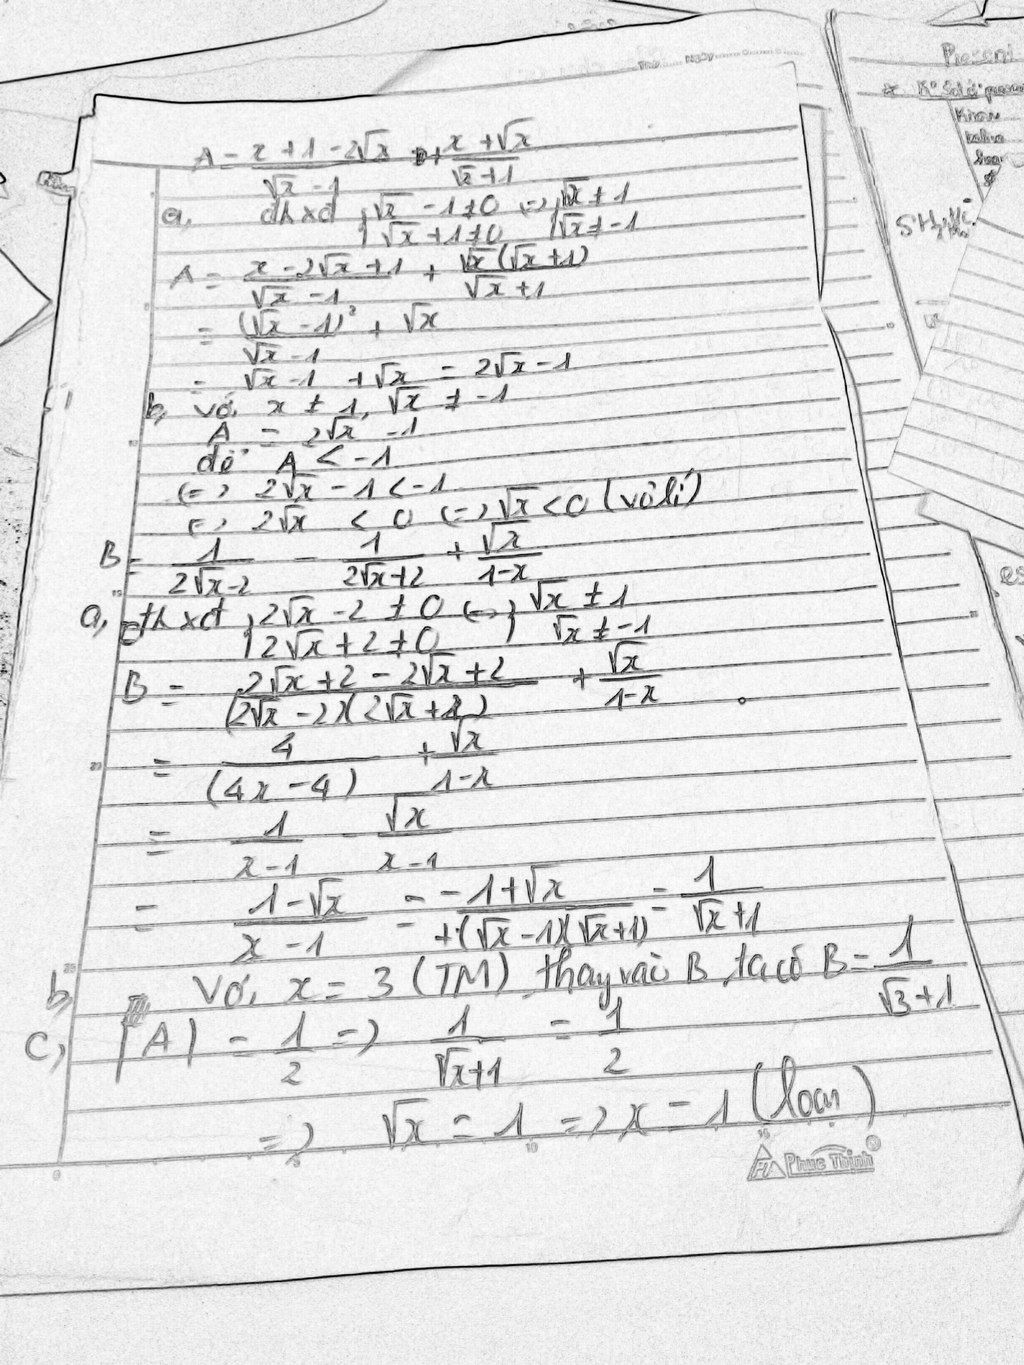 A = \frac{x+1-2\sqrt{x}}{\sqrt{x}-1} + \frac{x+\sqrt{x}}{\sqrt{x}+1}
a, đkxđ { √x -1≠0 <=> { √x ≠ 1
{ √x +1≠0 { √x ≠ -1
A = \frac{x-2\sqrt{x}+1}{\sqrt{x}-1} + \frac{\sqrt{x}(\sqrt{x}+1)}{\sqrt{x}+1}
= \frac{(\sqrt{x}-1)^2}{\sqrt{x}-1} + √x
= √x -1 + √x = 2√x -1
b, Với x ≠ 1, √x ≠ -1
A = 2√x -1
để A < -1
<=> 2√x - 1 < -1
<=> 2√x < 0 <=> √x < 0 (vô lí)
B = \frac{1}{2\sqrt{x}-2} - \frac{1}{2\sqrt{x}+2} + \frac{\sqrt{x}}{1-x}
a, đkxđ { 2√x -2 ≠ 0 <=> { √x ≠ 1
{ 2√x +2 ≠ 0 { √x ≠ -1
B = \frac{2\sqrt{x}+2-2\sqrt{x}+2}{(2\sqrt{x}-2)(2\sqrt{x}+2)} + \frac{\sqrt{x}}{1-x}
= \frac{4}{(4x-4)} + \frac{\sqrt{x}}{1-x}
= \frac{1}{x-1} - \frac{\sqrt{x}}{x-1}
= \frac{1-\sqrt{x}}{x-1} = \frac{-1+\sqrt{x}}{+(\sqrt{x}-1)(\sqrt{x}+1)} = \frac{1}{\sqrt{x}+1}
b, Với x = 3 (TM) thay vào B ta có B = \frac{1}{\sqrt{3}+1}
c, |A| = \frac{1}{2} => \frac{1}{\sqrt{x}+1} = \frac{1}{2}
=> √x = 1 => x = 1 (loại)
Phuc Thinh